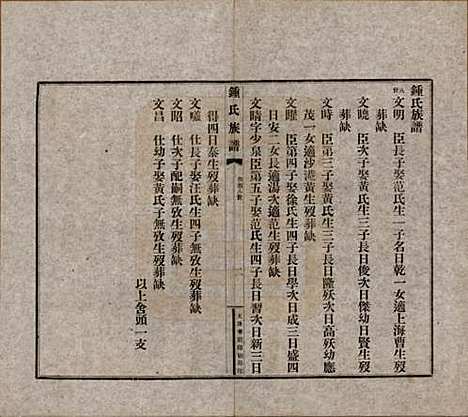 鍾氏族譜
文明 臣長子娶范氏生一子名日乾一女適上海曹生歿
葬缺
文曉 臣次子娶黃氏生三子長日俊次日傑幼日賢生歿
葬缺
文時 臣第三子娶黃氏生三子長日隆殀次日高殀幼應
茂一女適沙港黃生歿葬缺
文暉 臣第四子娶徐氏生四子長日學次日成三日盛四
日安二女長適湯次適范生歿葬缺
文晴字少泉臣第五子娶范氏生四子長日習次日新三日
鍾氏族譜
得四日泰生歿葬缺
文 仕長子娶汪氏生四子無攷生歿葬缺
文昭 仕次子配嗣無攷生歿葬缺
文昌 仕幼子娶黃氏子無攷生歿葬缺
以上舍頭一支